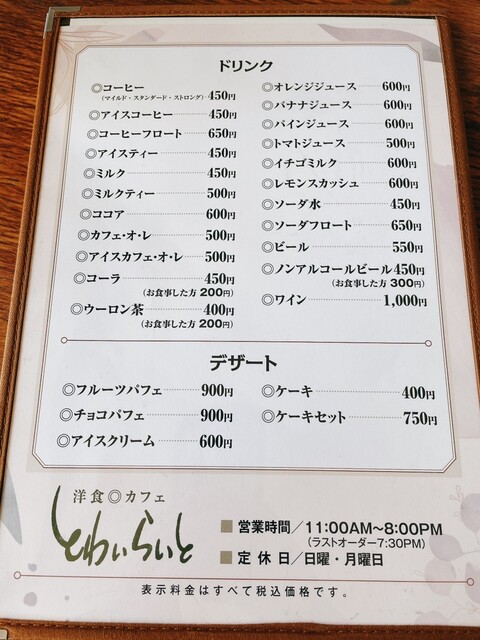 ドリンク
◎コーヒー
(マイルド・スタンダード・ストロング) 450円
◎アイスコーヒー 450円
◎コーヒーフロート 650円
◎アイスティー 450円
◎ミルク 450円
◎ミルクティー 500円
◎ココア 600円
◎カフェ・オ・レ 500円
◎アイスカフェ・オ・レ 500円
◎コーラ 450円
(お食事した方 200円)
◎ウーロン茶 400円
(お食事した方 200円)
◎オレンジジュース 600円
◎バナナジュース 600円
◎パインジュース 600円
◎トマトジュース 500円
◎イチゴミルク 600円
◎レモンスカッシュ 600円
◎ソーダ水 450円
◎ソーダフロート 650円
◎ビール 550円
◎ノンアルコールビール 450円
(お食事した方 300円)
◎ワイン 1,000円
デザート
◎フルーツパフェ 900円
◎チョコパフェ 900円
◎アイスクリーム 600円
◎ケーキ 400円
◎ケーキセット 750円
洋食◎カフェ
とわいらいと
■ 営業時間/11:00AM〜8:00PM
(ラストオーダー7:30PM)
■ 定休日/日曜・月曜日
表示料金はすべて税込価格です。